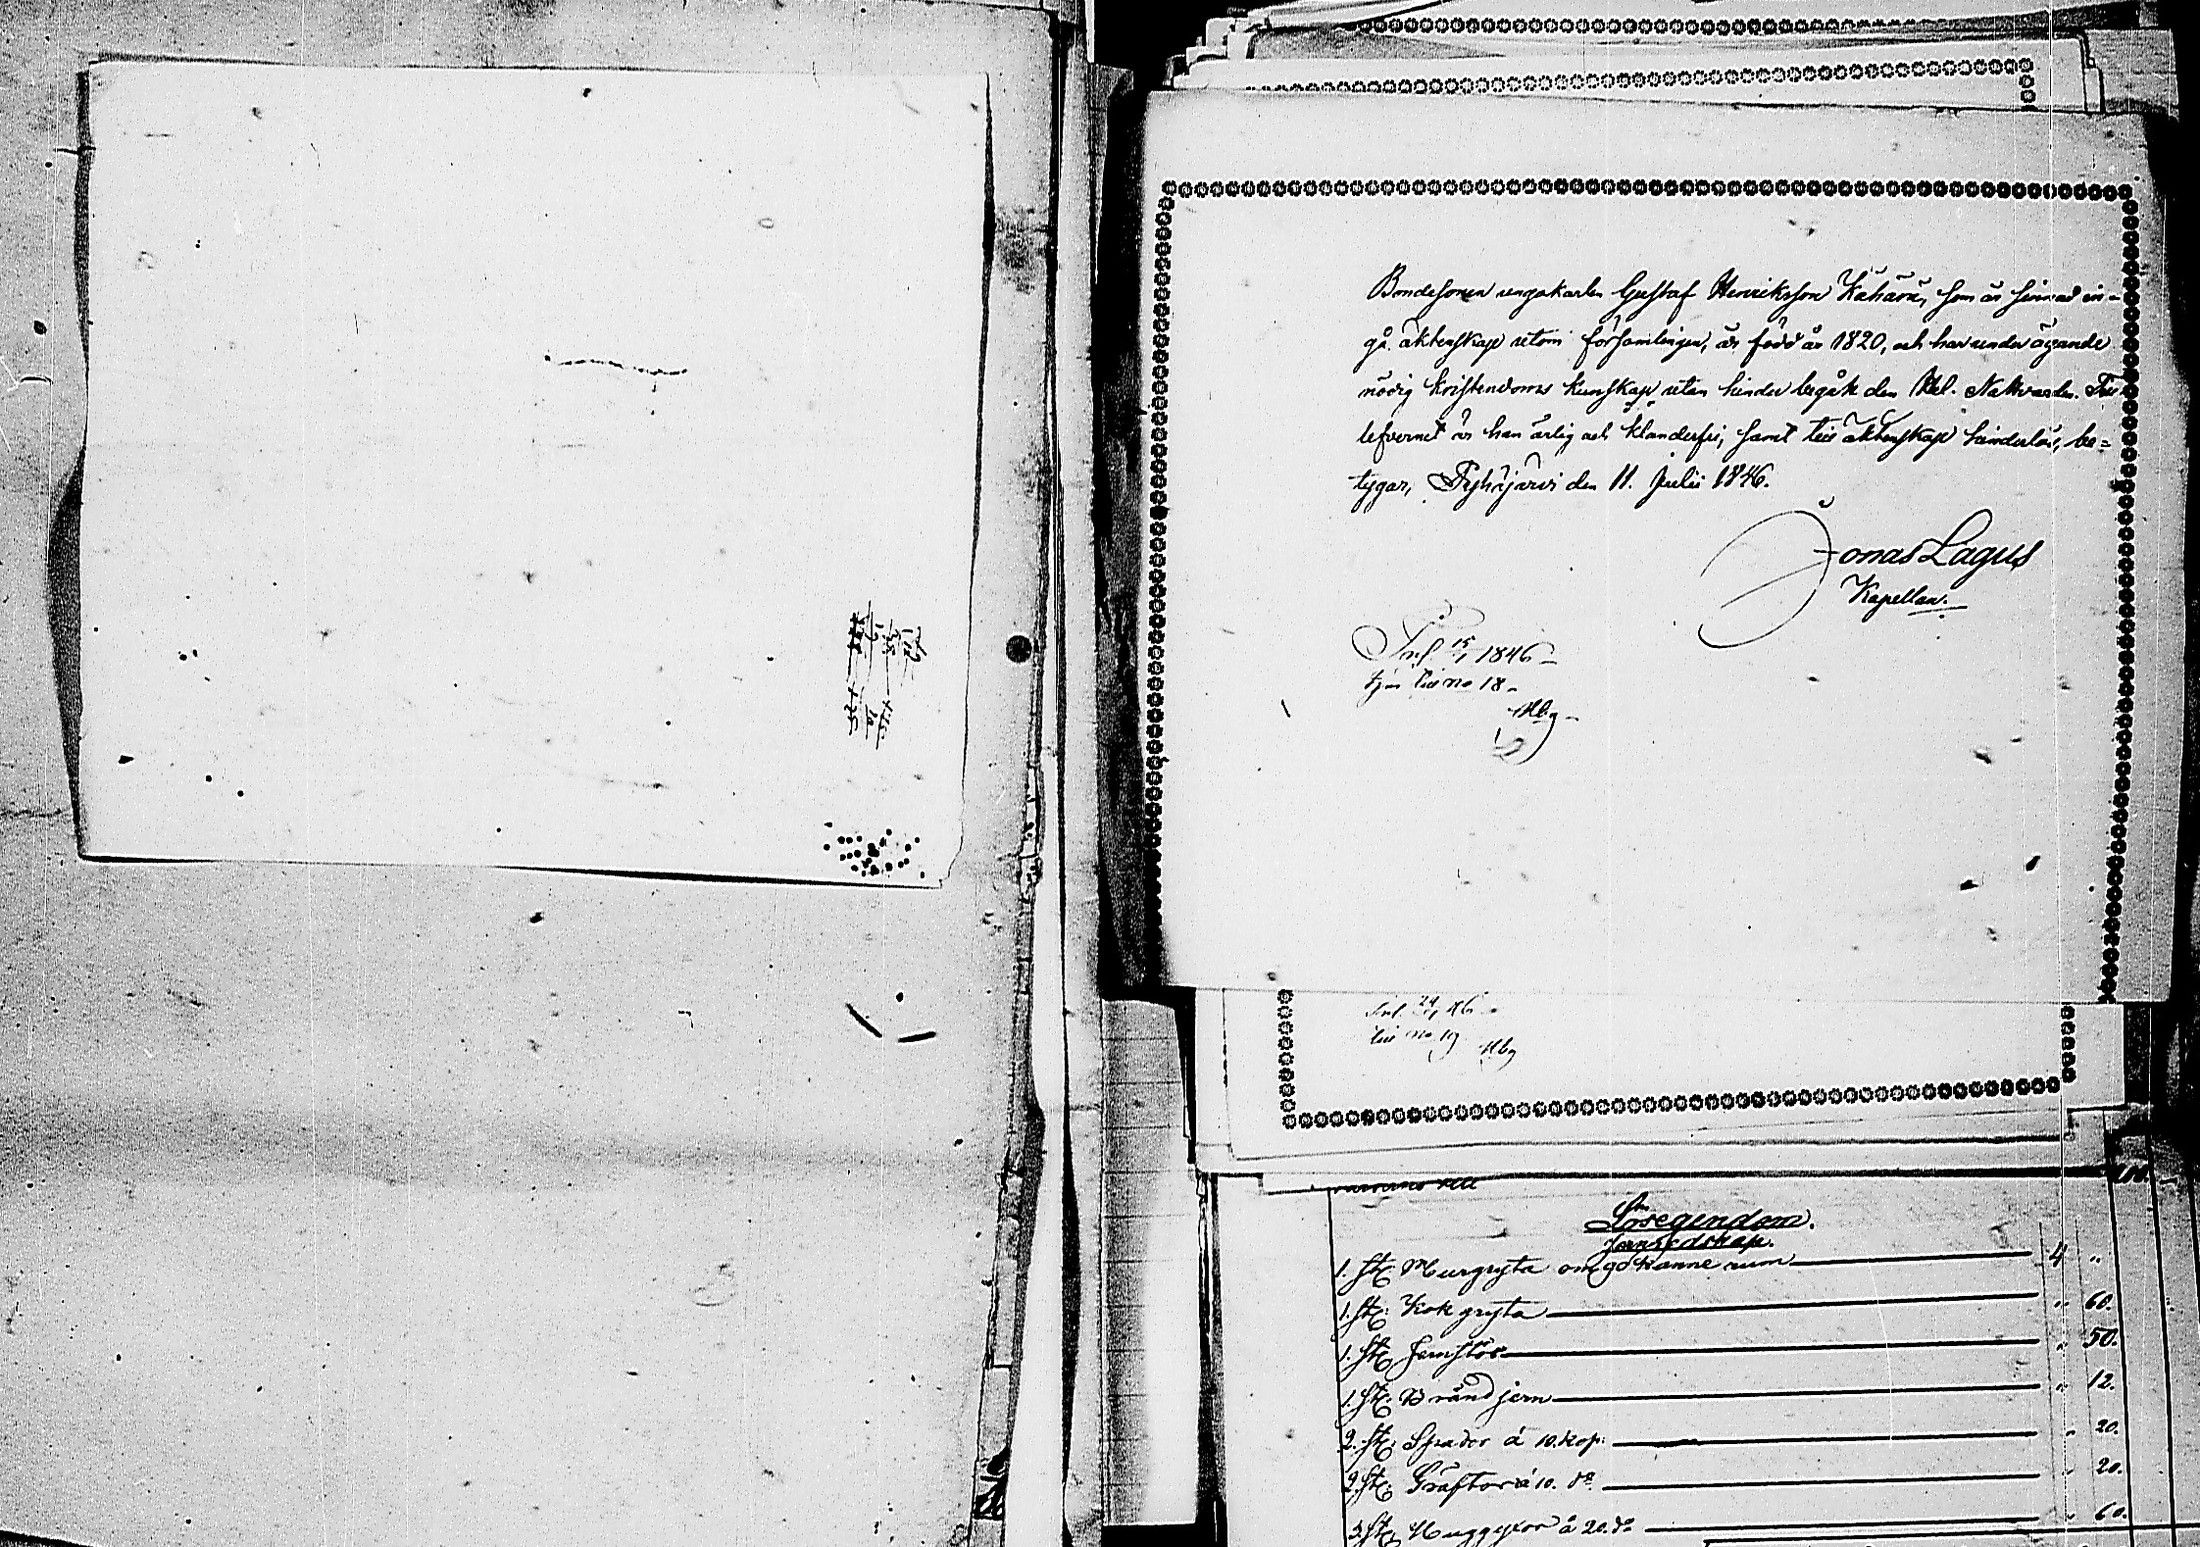 Bondesonen ungakarlen Gustaf Henriksson Kähärä, som är sinnad in-
gå äktenskap utom församlingen, är född år 1820, och har under ägande
nödig kristendoms kunskap utan hinder begått den Hel. Nattvarden. Till
lefvernet är han ärlig och klanderfri, samt till äktenskap hinderlös, be-
tygar, Pyhäjärvi den 11. Julii 1846.
Jonas Lagus
Kapellan.
1846
till no 18
Hbg
24 46
till no 19
Hbg
Lösegendom.
Jernredskap.
1. st. Murgryta om 90 kanne rum 4 "
1. st. Kok gryta " 60.
1. st. Jernstör " 50.
1. st. Brändjern " 12.
2. st. Spador á 10. kop: " 20.
2. st. Gräftor á 10. do " 20.
3. st. Huggyxor á 20. do " 60.